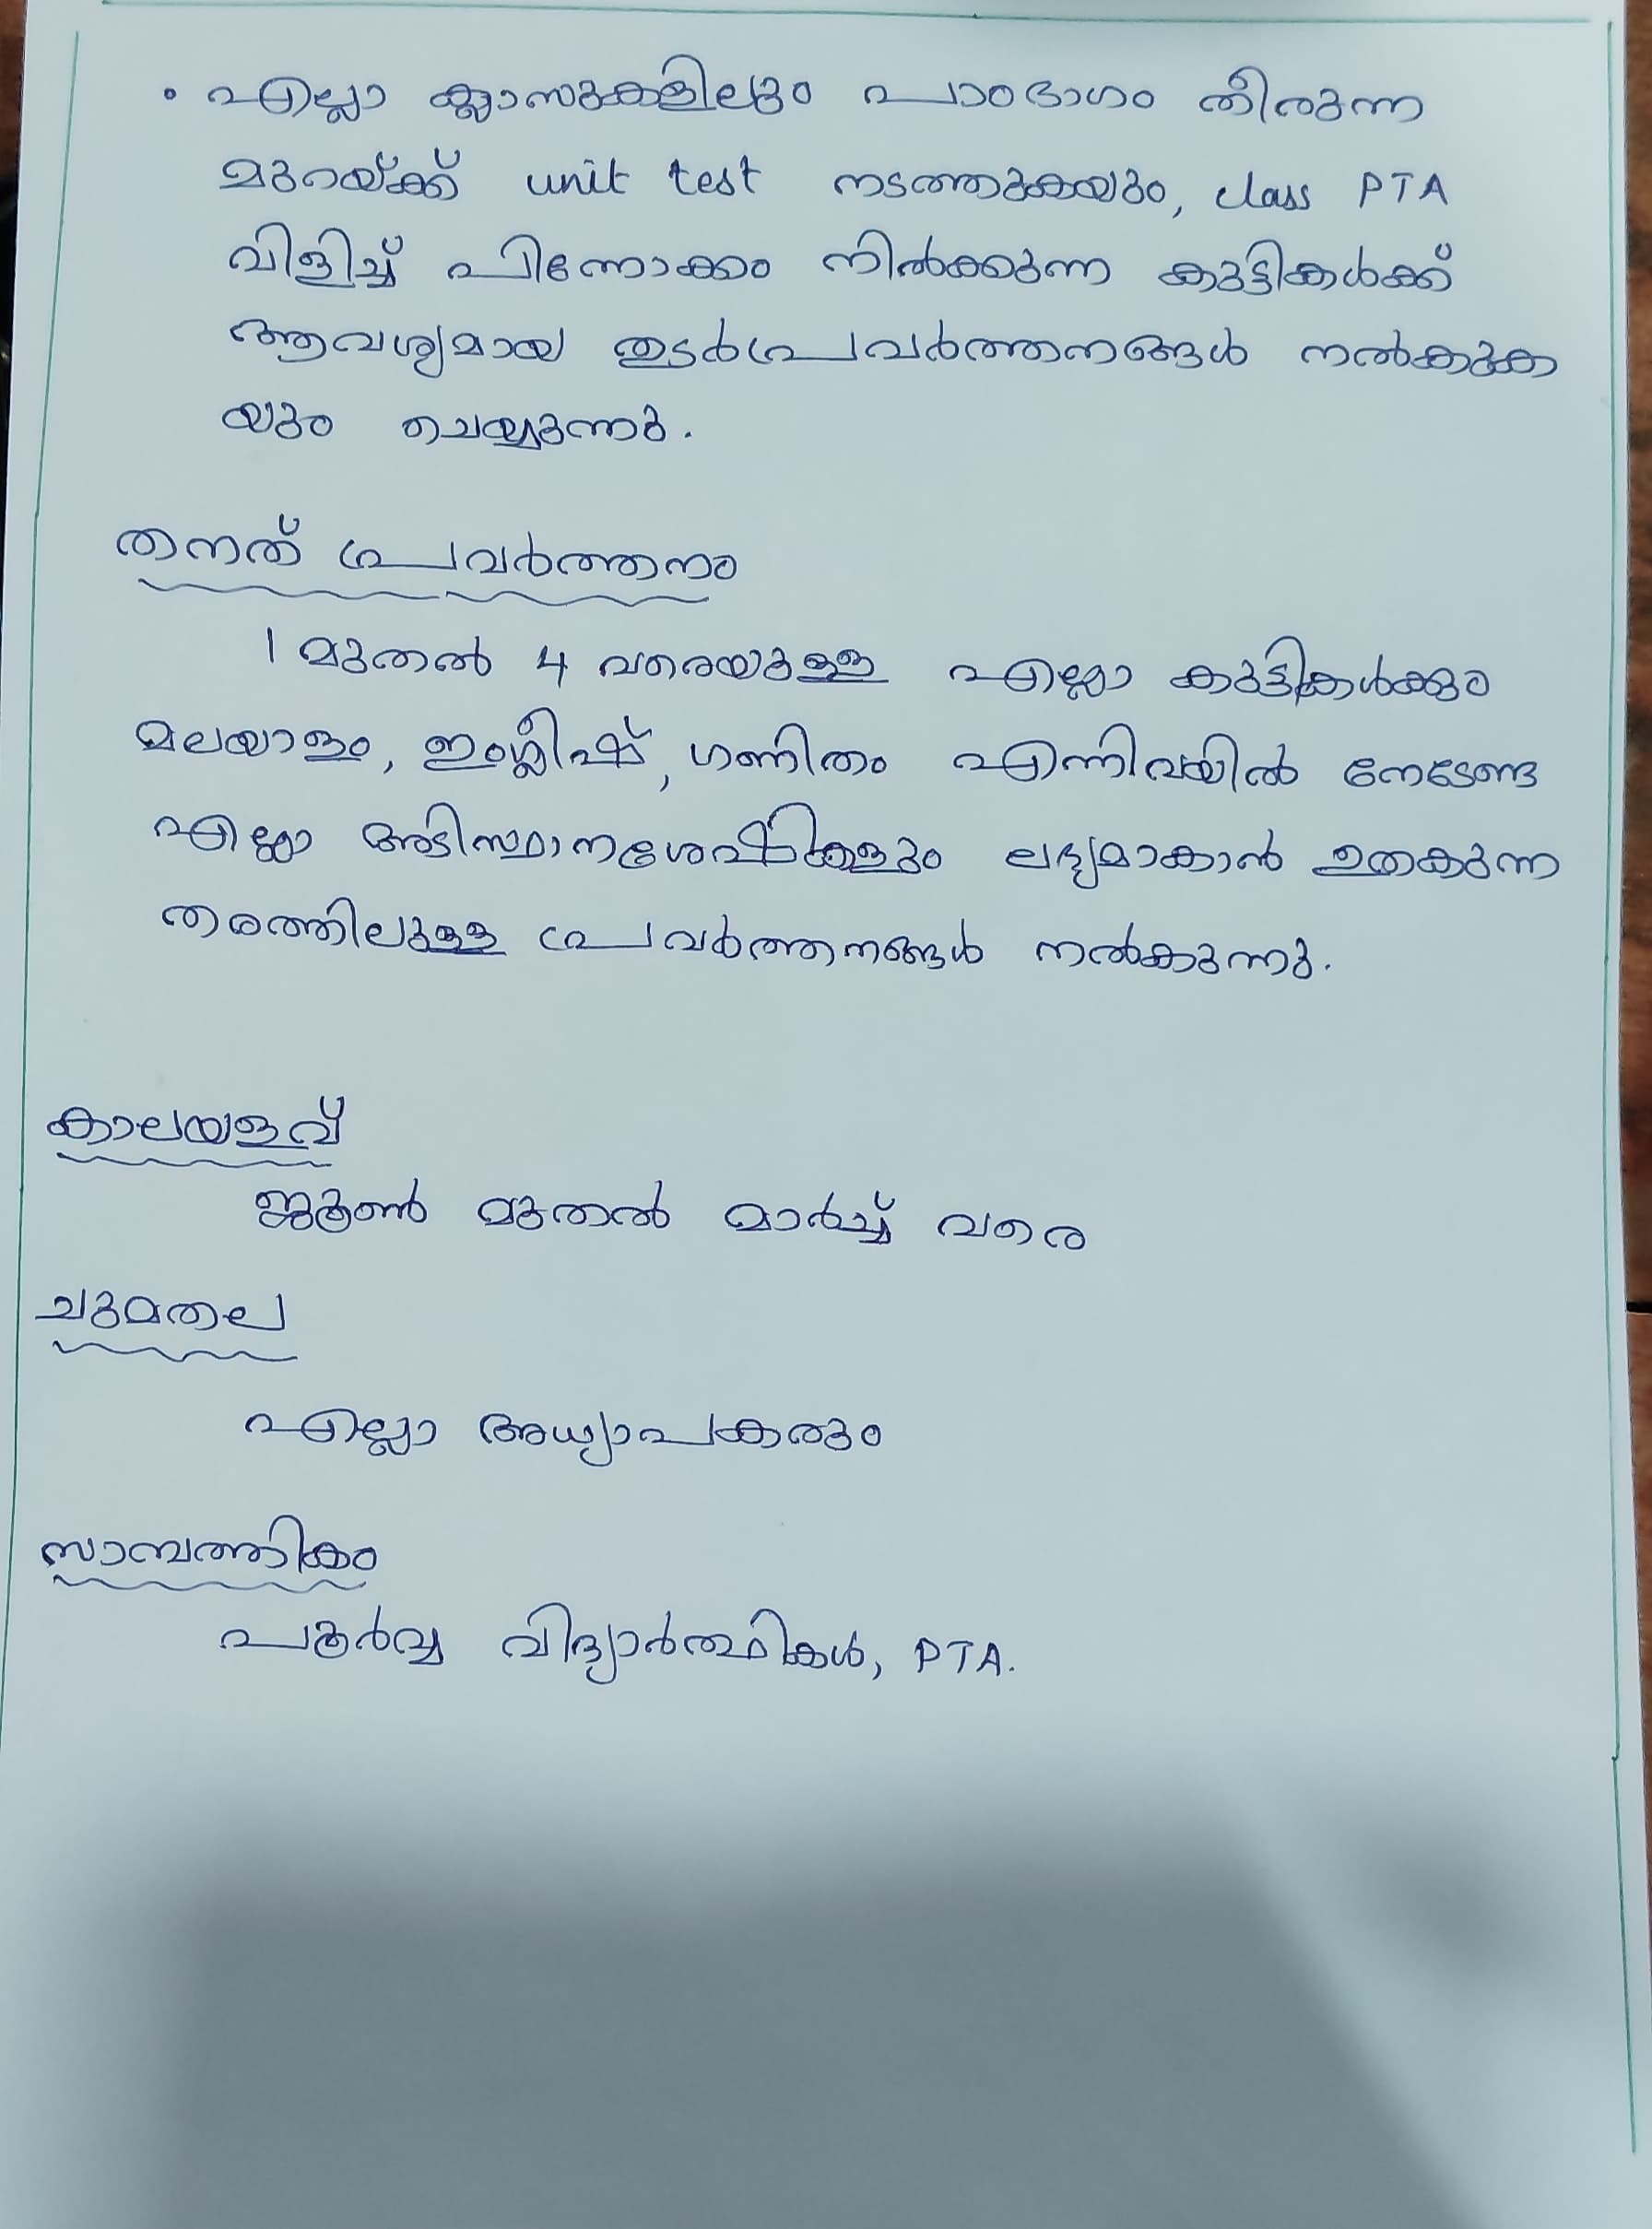 • എല്ലാ ക്ലാസുകളിലും പാഠഭാഗം തീരുന്ന
മുറയ്ക്ക് unit test നടത്തുകയും, class PTA
വിളിച്ച് പിന്നോക്കം നിൽക്കുന്ന കുട്ടികൾക്ക്
ആവശ്യമായ തുടർപ്രവർത്തനങ്ങൾ നൽകുക
യും ചെയ്യുന്നു.
തനത് പ്രവർത്തനം
1 മുതൽ 4 വരെയുള്ള എല്ലാ കുട്ടികൾക്കും
മലയാളം, ഇംഗ്ലീഷ്, ഗണിതം എന്നിവയിൽ നേടേണ്ട
എല്ലാ അടിസ്ഥാനശേഷികളും ലഭ്യമാകാൻ ഉതകുന്ന
തരത്തിലുള്ള പ്രവർത്തനങ്ങൾ നൽകുന്നു.
കാലയളവ്
ജൂൺ മുതൽ മാർച്ച് വരെ
ചുമതല
എല്ലാ അധ്യാപകരും
സാമ്പത്തികം
പൂർവ്വ വിദ്യാർത്ഥികൾ, PTA.